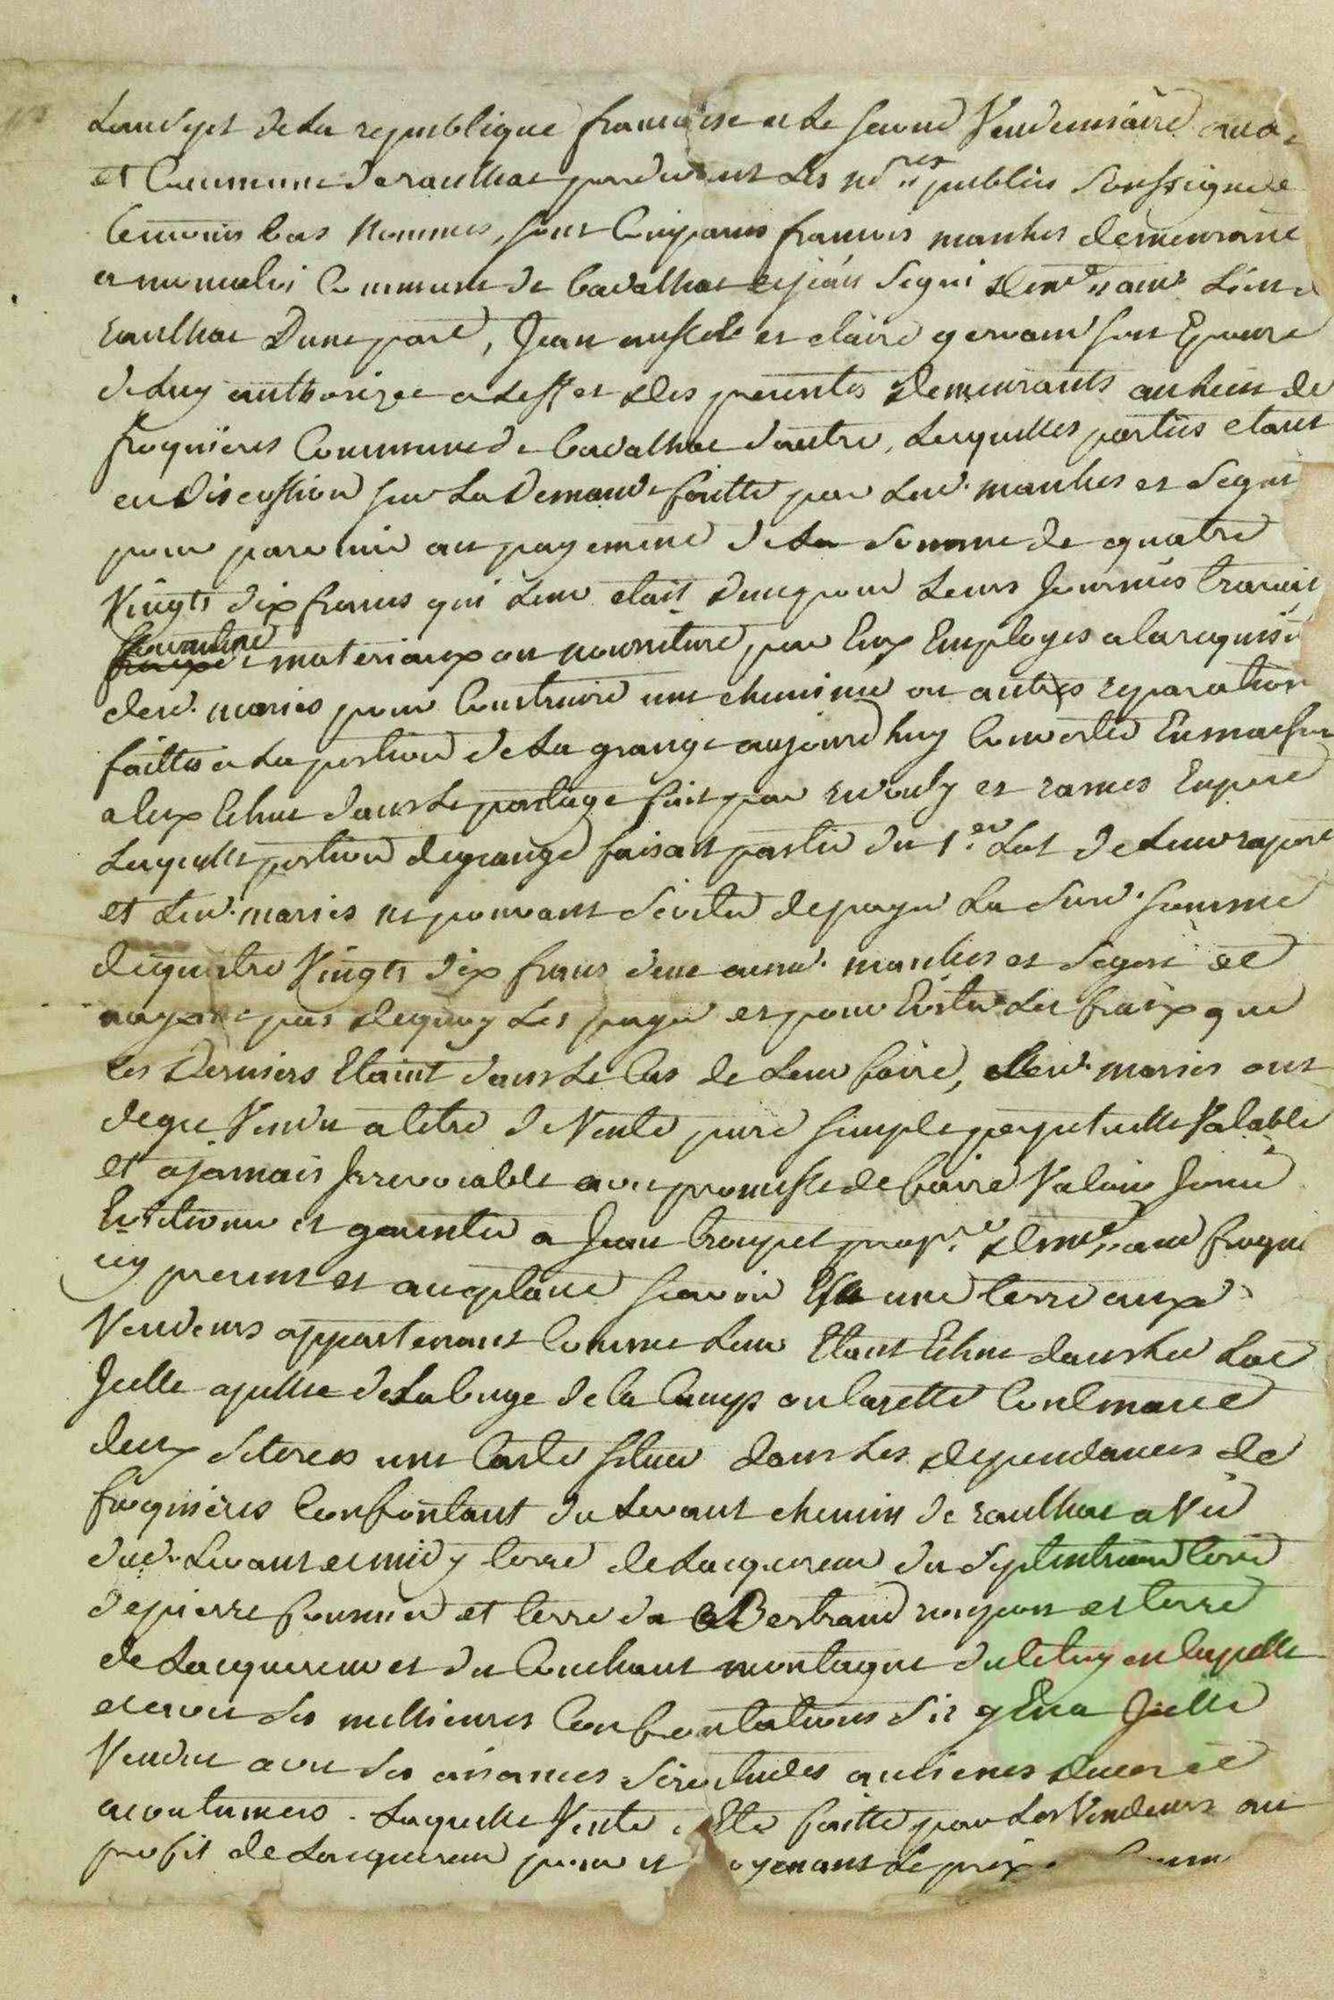 Lan Sept de La republique francaise et Le second Vendemiaire au
et Commune de raulhac pardevant Les nores publics Soussignés
temoins bas Nommes, sont Comparus francois manhes demeurant
a Commune de badalhac et jean Segui demt au Lieu de
raulhac Dune part, Jean et claire gervain son Epouse
de Luy authorizee a Leffet des presentes demeurants au Lieu de
froquieres Commune de badalhac dautre, Lesquelles parties etant
en Discussion sur La Demande faitte par Led. manhes et Segui
pour parvenir au payement de La Somme de quatre
Vingts dix francs qui Leur etait due pour Leurs Journées travail
fourniture materiaux ou nourriture par Eux Employes a la requisi
desd. mariés pour Construire une cheminée ou autres reparation
faittes a La portion de La grange aujourdhuy Convertie En maison
a Eux Echue dans Le partage fait par et rames Expert
Laquelle portion de grange faisait partie du 1er Lot de Leur raport
et Lesd. mariés ne pouvant Seviter de payer La Susd. somme
de quatre Vingts dix francs due auxd. manhes et Segui et
nayant pas de quoy Les payer et pour Eviter Les fraix que
ces Derniers Etaint dans Le Cas de Leur faire, Lesd. mariés ont
de gré Vendu a titre de Vente pure simple perpetuelle Valable
et a jamais Irrevocable avec promesse de faire Valoir Jouir
Eviction et garentie a Jean troupel propre demt au froqui
icy present et acceptant scavoir Est une terre aux
Vendeurs appartenant Comme Leur Etant Echue dans Led Lot
Icelle apellée de La buge de la Camp ou Lasette Contenance
deux seterées une Carte située dans Les dependances de
froquieres Confrontant du Levant chemin de raulhac a Vic
dud. Levant et midy terre de Lacquereur du Septentrion terre
de pierre fournier et terre de Bertrand et terre
de Lacquereur et du Couchant montagne du
et avec Ses meillieures Confrontations Sil y En a Icelle
Vendue avec Ses aisances Servitudes anciennes et
acoutumées. Laquelle Vente a Eté faitte par Les Vendeurs au
profit de Lacquereur pour et moyenant Le prix